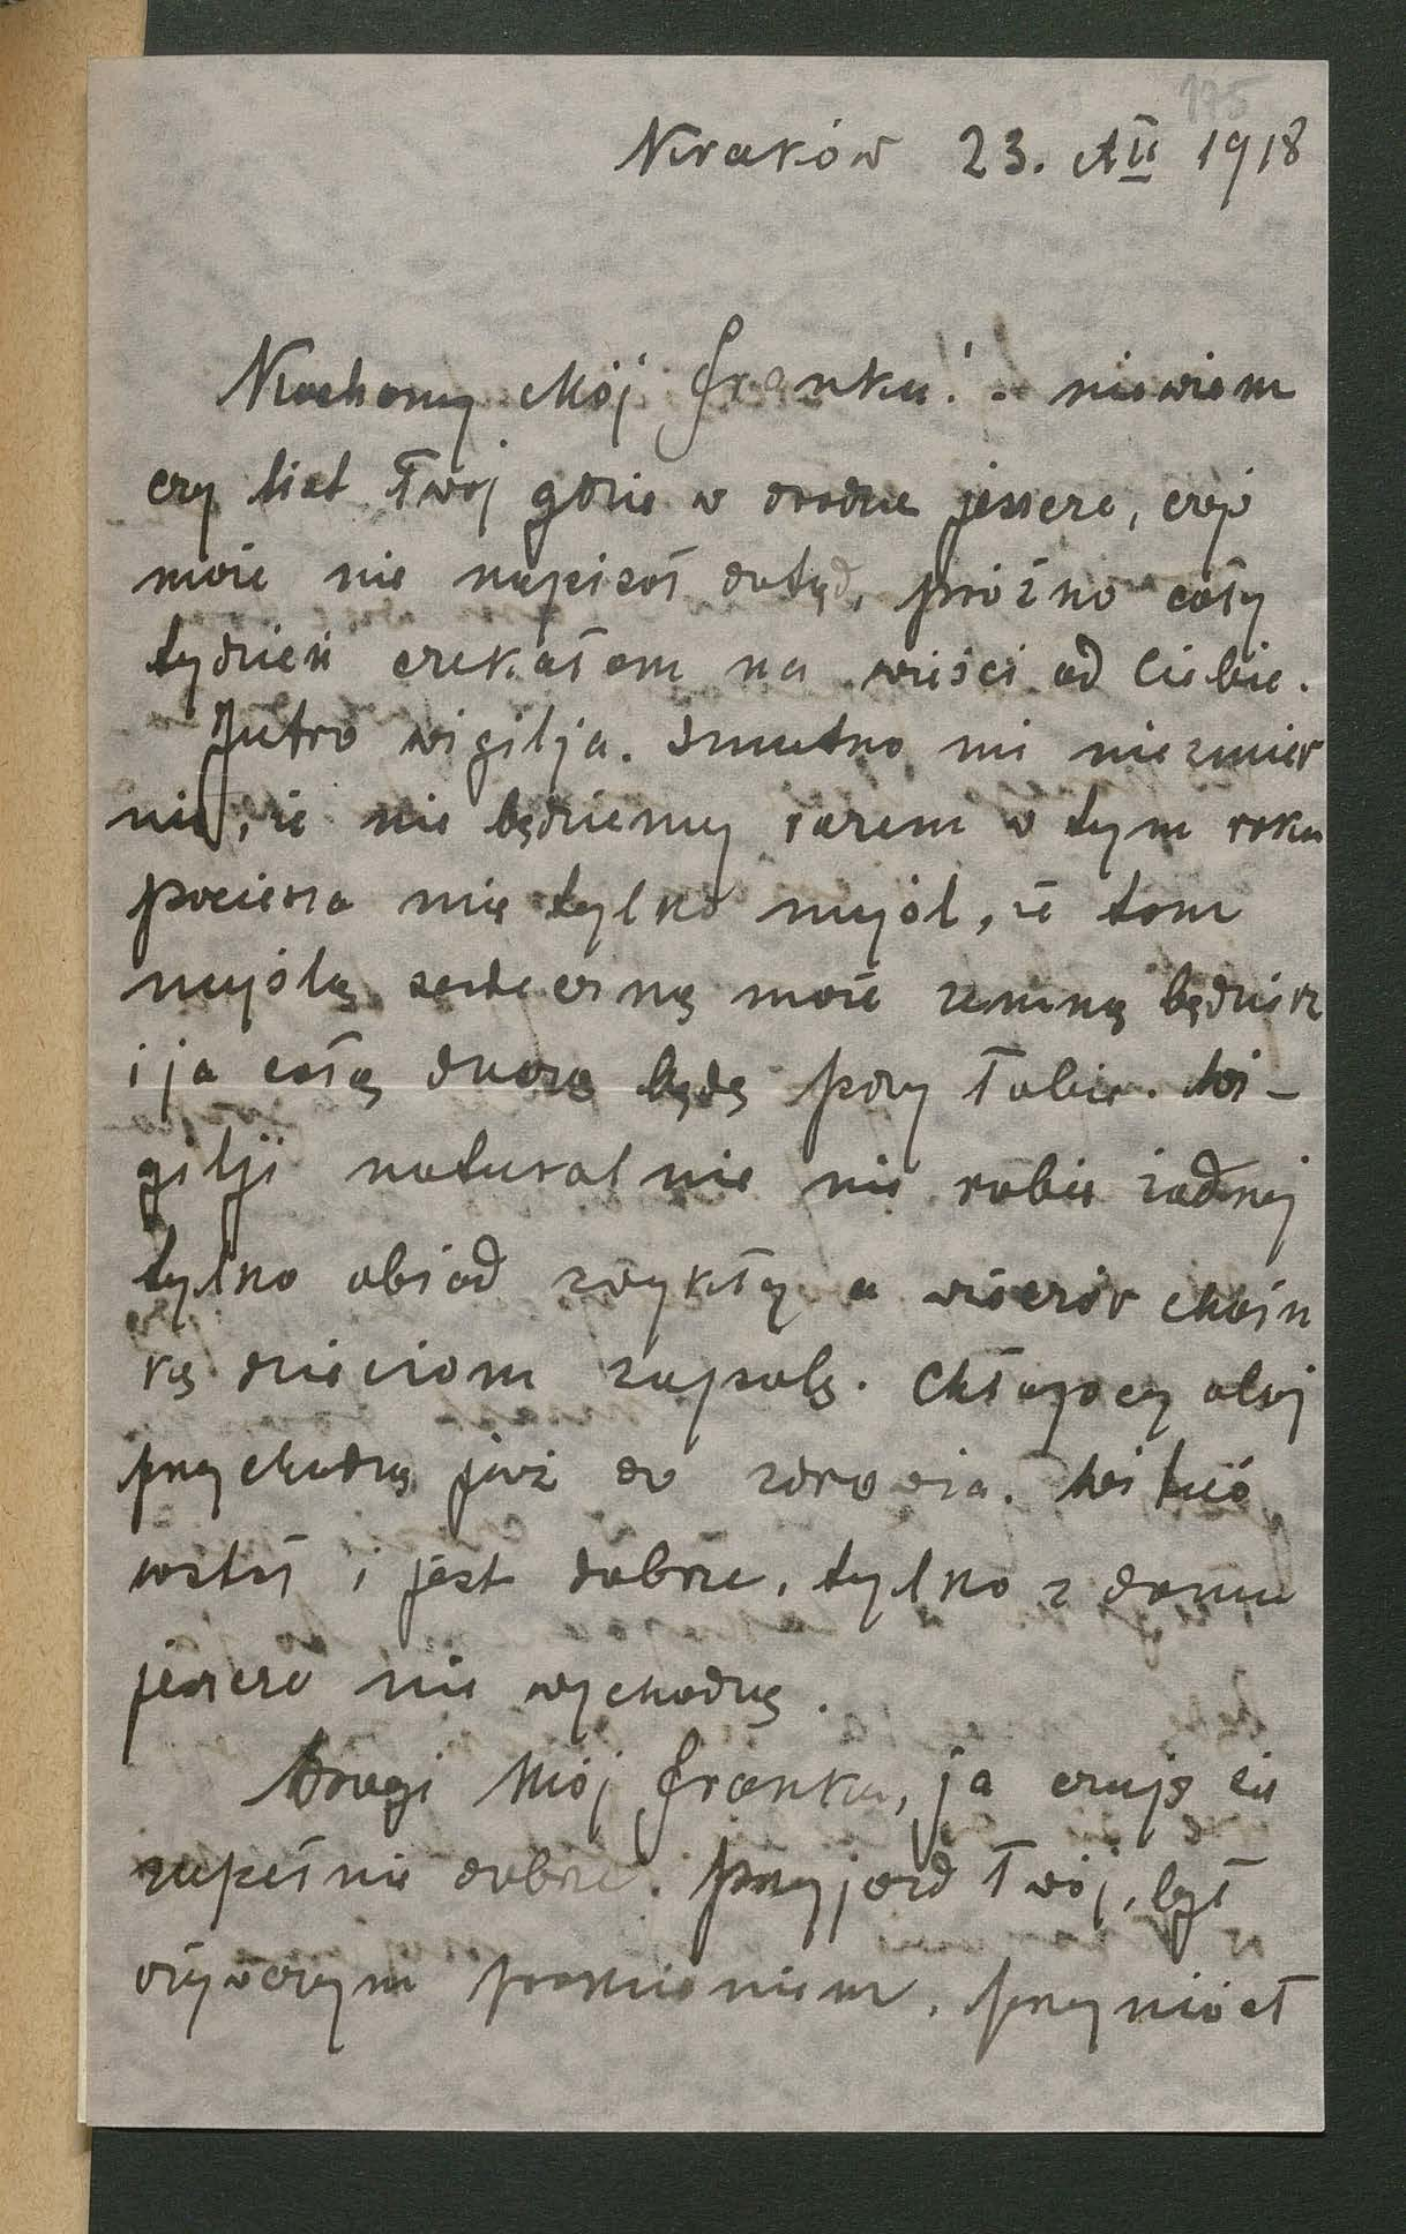 175
Kraków 23. XII 1918
Kochany Mój Franku! - niewiem
czy list Twój gdzie w drodze jeszcze, czyś
może nie napisał dotąd, próżno cały
tydzień czekałam na wieści od Ciebie.
Jutro wigilja. Smutno mi niezmier
nie, że nie będziemy razem w tym roku
pociesza mię tylko myśl, że tam
myślą serdeczną może zemną będziesz
i ja całą duszą będę przy Tobie. Wi-
gilji naturalnie nie robię żadnej
tylko obiad zwykły a wieczór choin
kę dzieciom zapalę. Chłopcy obaj
przychodzą już do zdrowia. Wituś
wstał i jest dobrze, tylko z domu
jeszcze nie wychodzą.
Drogi Mój Franku, ja czuję się
zupełnie dobrze. Przyjazd Twój, był
ożywczym promieniem, przyniósł